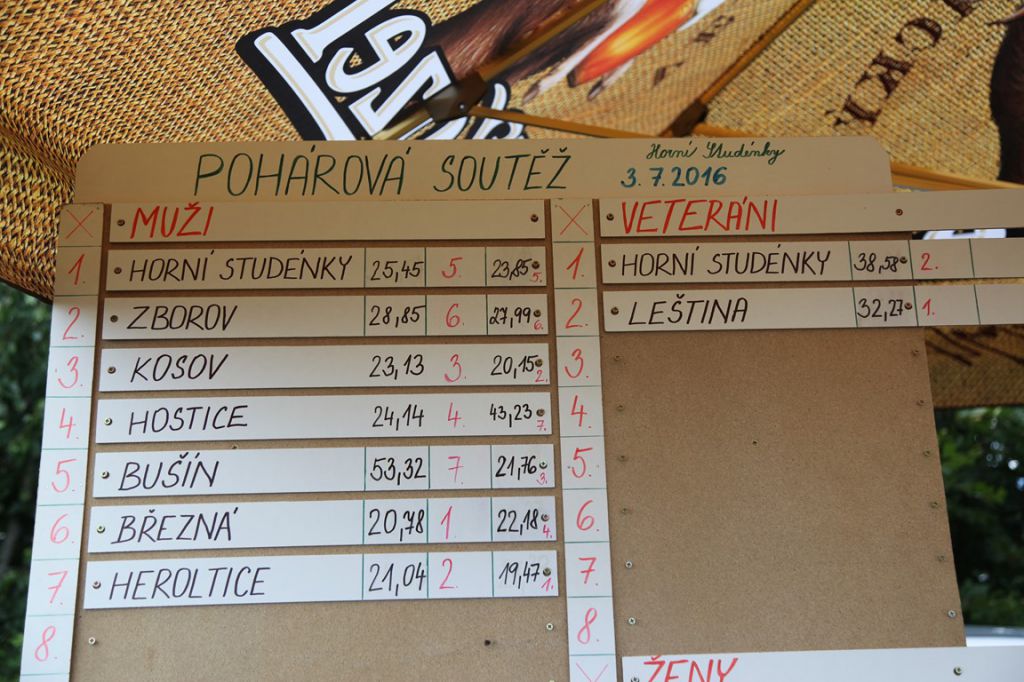 POHÁROVÁ SOUTĚŽ
Horní Studénky
3.7.2016
X MUŽI
1. HORNÍ STUDÉNKY 25,45 5. 23,85 5.
2. ZBOROV 28,85 6. 27,99 6.
3. KOSOV 23,13 3. 20,15 2.
4. HOSTICE 24,14 4. 43,23 7.
5. BUŠÍN 53,32 7. 21,76 3.
6. BŘEZNÁ 20,78 1. 22,18 4.
7. HEROLTICE 21,04 2. 19,47 1.
8.
X VETERÁNI
1. HORNÍ STUDÉNKY 38,58 2.
2. LEŠTINA 32,27 1.
3.
4.
5.
6.
7.
8.
X ŽENY